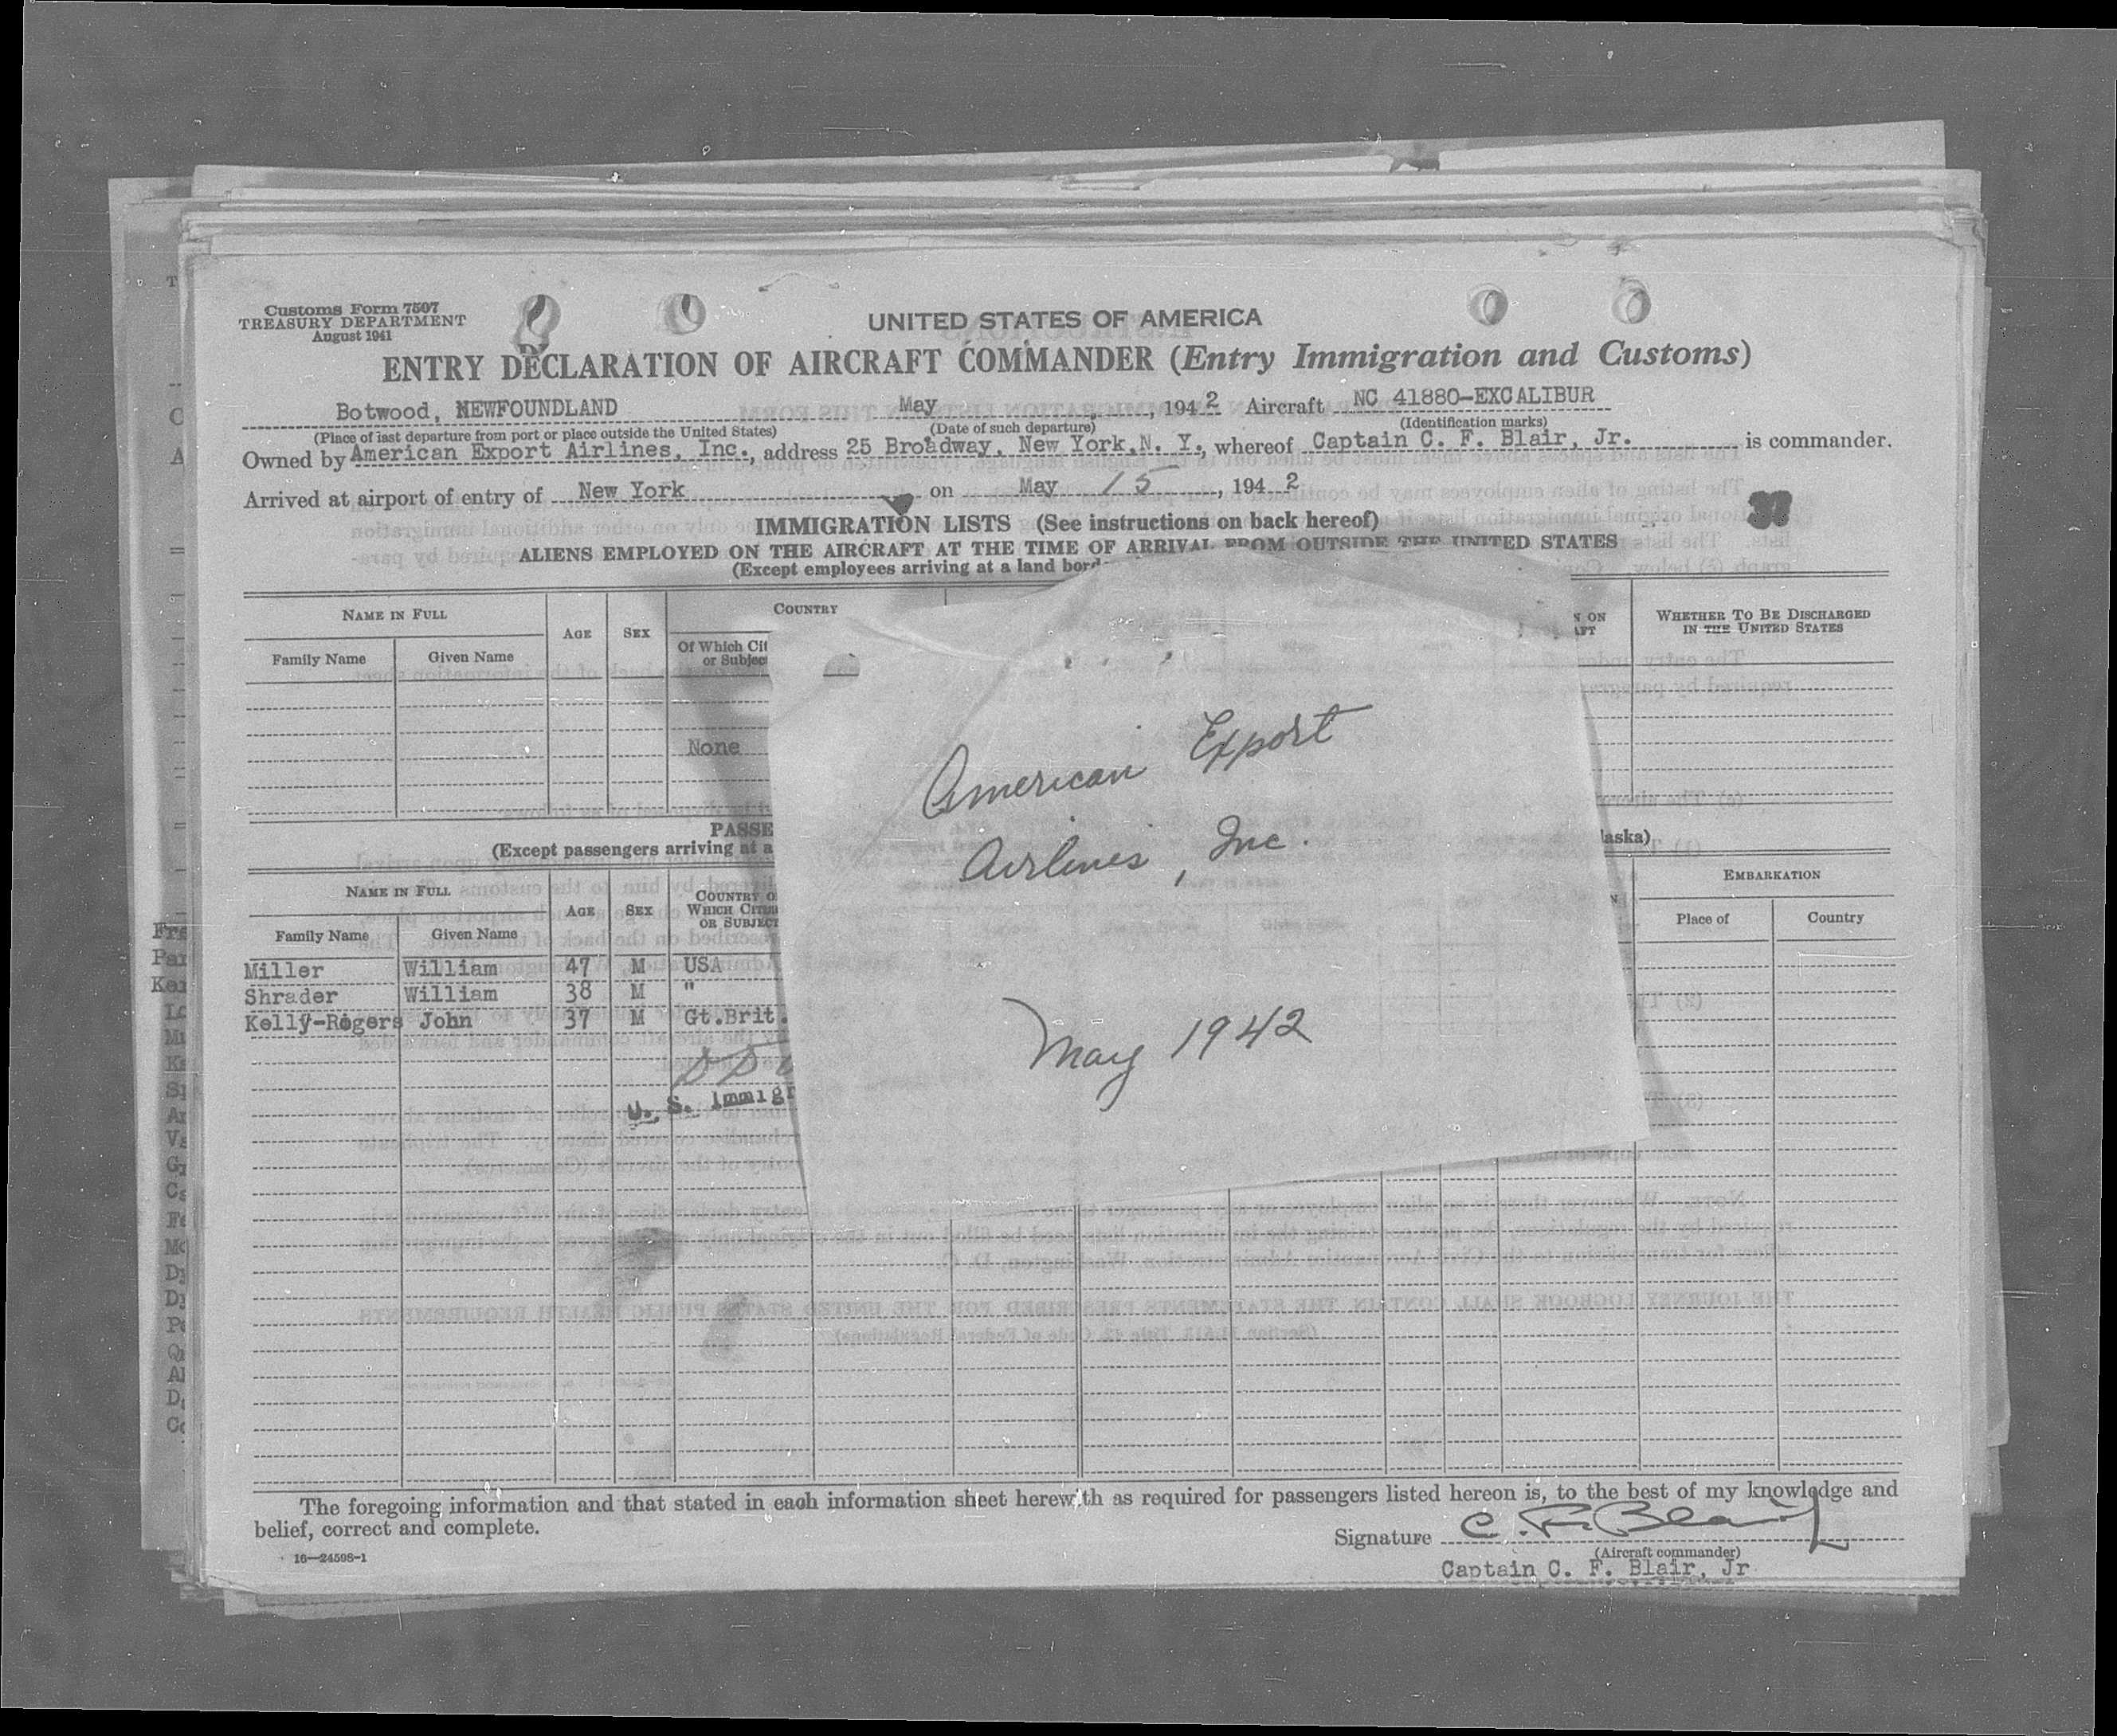 Customs Form 7507
TREASURY DEPARTMENT
August 1941
UNITED STATES OF AMERICA
ENTRY DECLARATION OF AIRCRAFT COMMANDER (Entry Immigration and Customs)
Botwood, NEWFOUNDLAND May , 1942 Aircraft NC 41880-EXCALIBUR
(Place of last departure from port or place outside the United States) (Date of such departure) (Identification marks)
Owned by American Export Airlines, Inc., address 25 Broadway, New York, N. Y., whereof Captain C. F. Blair, Jr. is commander.
Arrived at airport of entry of New York on May 15, 1942
IMMIGRATION LISTS (See instructions on back hereof)
ALIENS EMPLOYED ON THE AIRCRAFT AT THE TIME OF ARRIVAL FROM OUTSIDE THE UNITED STATES
(Except employees arriving at a land bord
NAME IN FULL AGE SEX COUNTRY N ON WHETHER TO BE DISCHARGED
AFT IN THE UNITED STATES
Family Name Given Name Of Which Cit
or Subject
None
American Export
Airlines, Inc.
May 1942
PASSE
(Except passengers arriving at a laska)
NAME IN FULL AGE SEX COUNTRY O EMBARKATION
WHICH CITIZ
OR SUBJECT
Family Name Given Name Place of Country
Miller William 47 M USA
Shrader William 38 M "
Kelly-Rogers John 37 M Gt.Brit.
U. S. Immigr
The foregoing information and that stated in each information sheet herewith as required for passengers listed hereon is, to the best of my knowledge and
belief, correct and complete.
Signature C. F. Blair Jr
(Aircraft commander)
16—24598-1
Captain C. F. Blair, Jr